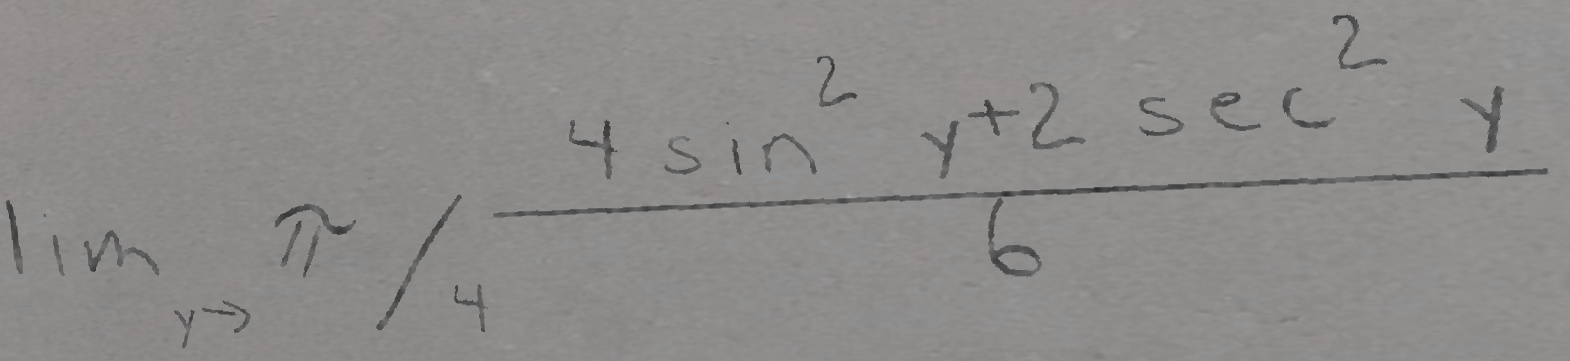 lim_{y \to \pi/4} \frac{4 sin^2 y + 2 sec^2 y}{6}